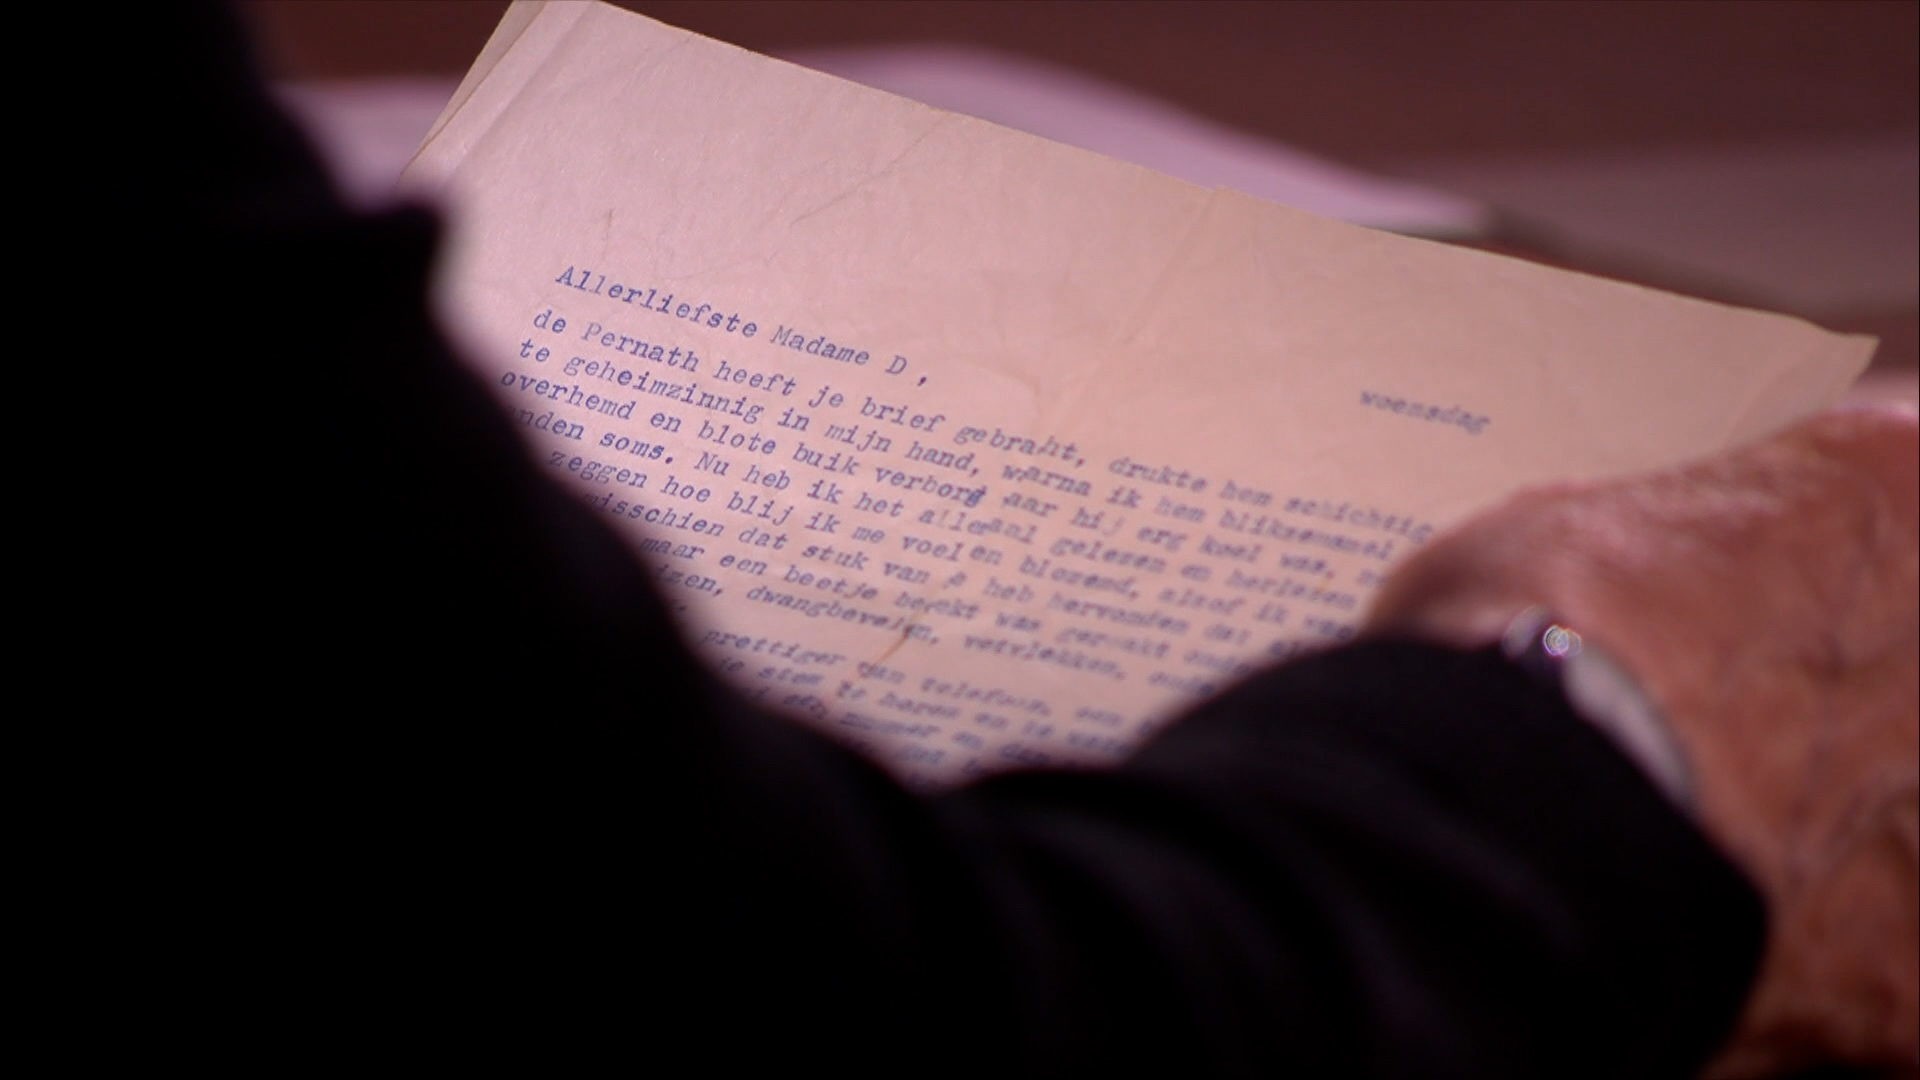 Allerliefste Madame D,
woensdag
de Pernath heeft je brief gebraht, drukte hem schichtig
te geheimzinnig in mijn hand, warna ik hem bliksemsnel
overhemd en blote buik verborg aar hij erg koel was,
nden soms. Nu heb ik het allemaal gelezen en herlezen
zeggen hoe blij ik me voel en blozend, alsof ik
misschien dat stuk van heb hervonden dat
maar een beetje was geraakt
izen, dwangbevelen, vetvlekken,
prettiger van telefoon, een
je stem te horen en
zummer en